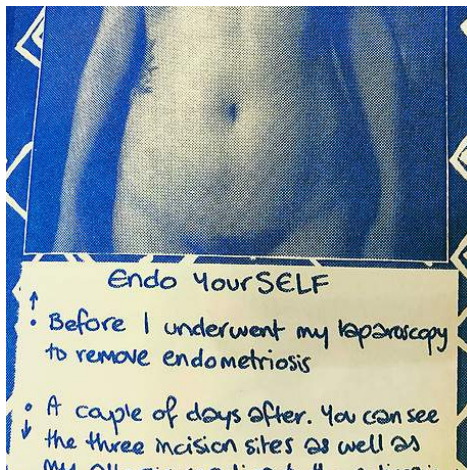 Endo YourSELF
↑
• Before I underwent my laparoscopy
to remove endometriosis
• A couple of days after. You can see
↓ the three incision sites as well as
my